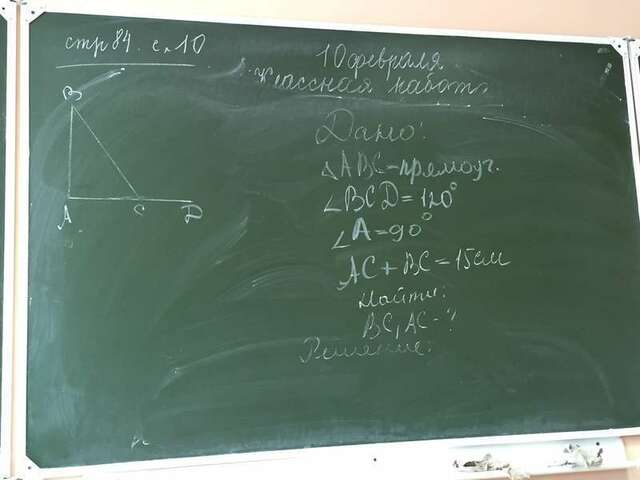 стр 84. с.10
10 февраля.
Классная работа
B
A
C
D
Дано:
△ABC-прямоуг.
∠BCD=120°
∠A=90°
AC+BC=15см
Найти:
BC, AC-?
Решение: